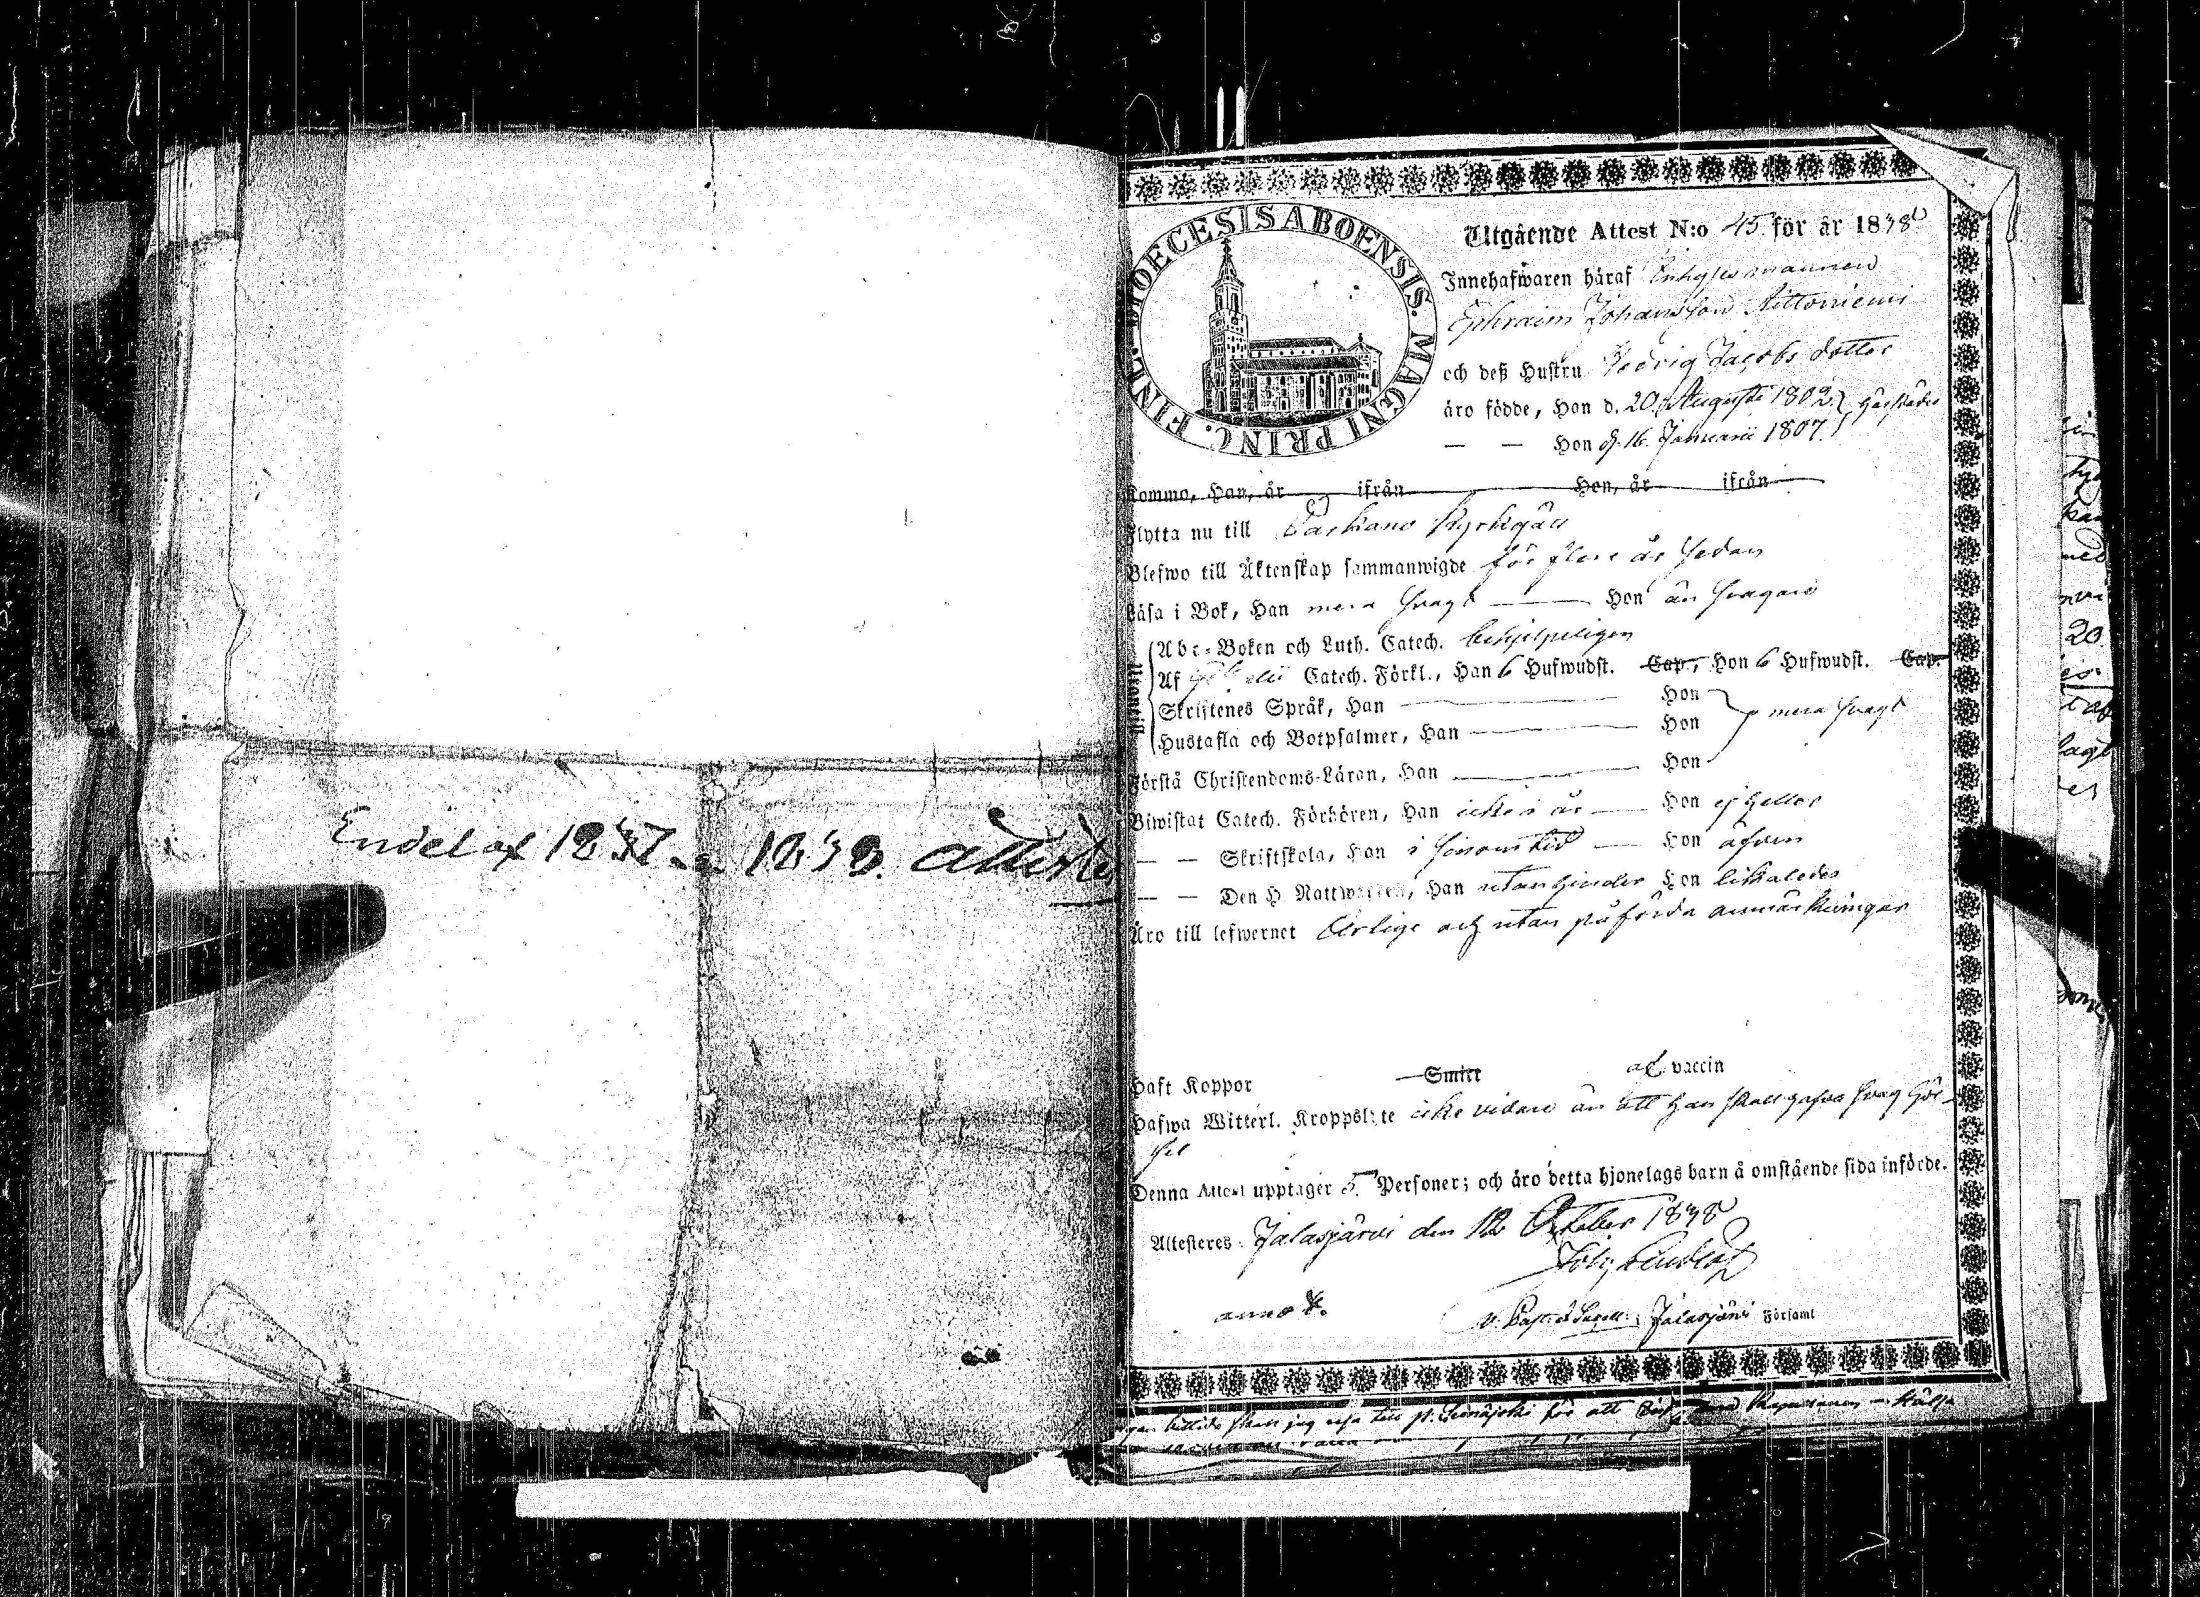 Endel af 1837 1838. attester
DIOECESIS ABOENSIS. MAGNI PRINC. FINL.
Utgående Attest N:o 45 för år 1838
Innehafwaren häraf Inhysesmannen
Ephraim Johansson
och deß Hustru Hedvig Jacobs dotter
äro födde, Han d. 20 Augusti 1802 härstädes
— — Hon d. 16 Januarii 1807.
Komma, Han, år ifrån Hon, år ifrån
Flytta nu till Kyrkogäll
Blefwo till Äktenskap sammanwigde för flere år sedan
Läsa i Bok, Han mera svagt — Hon än svagare
Abc-Boken och Luth. Catech. behjelpeligen
Af Catech. Förkl., Han 6 Hufwudst. Cap., Hon 6 Hufwudst. Cap.
Skriftenes Språk, Han — Hon
Hustafla och Botpsalmer, Han — Hon mera svagt
Förstå Christendoms-Läran, Han — Hon
Biwistat Catech. Förhören, Han icke i år — Hon ej heller
— — Skriftskola, Han i sinom tid — Hon äfven
— — Den H. Nattwarden, Han utan hinder Hon likaledes
Äro till lefwernet ärlige och utan påförda anmärkningar
Haft Koppor Smitt af vaccin
Hafwa Witterl. Kroppslyte icke vidare än att han skall hafva svag hör-
sel
Denna Attest upptager 5 Personer; och äro detta hjonelags barn å omstående sida införde.
Attesteres: Jalasjärvi den 12 October 1838
v. Past. Jalasjärvi Församl